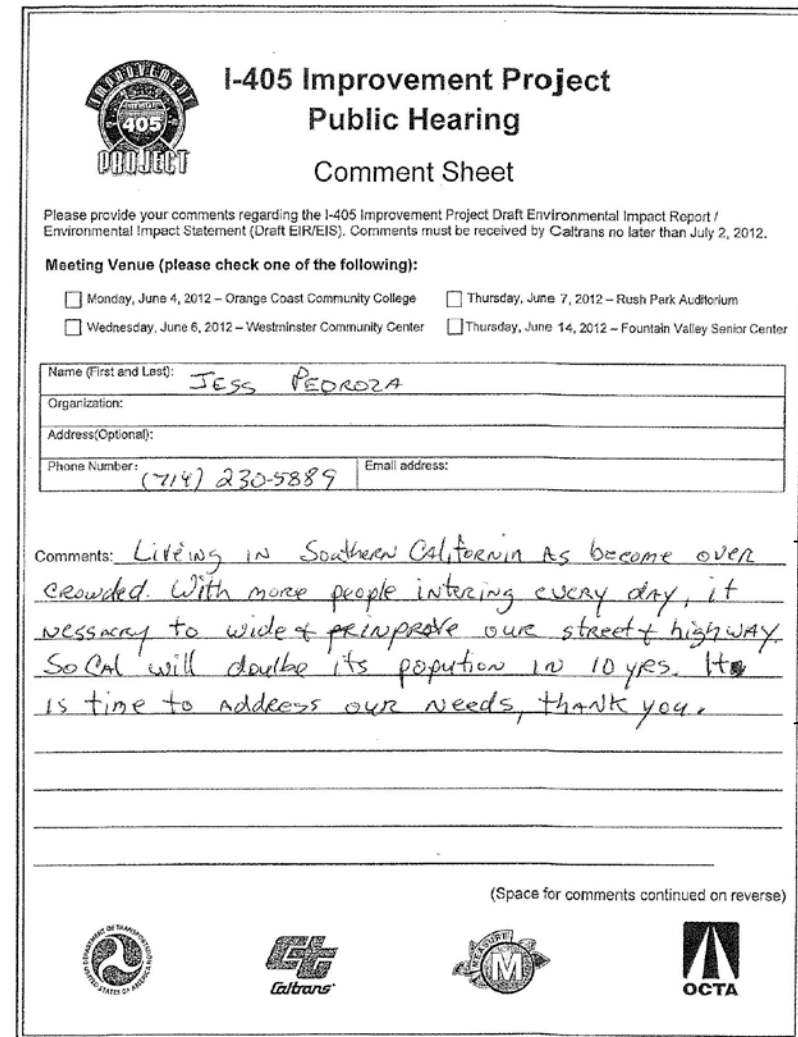 IMPROVEMENT
INTERSTATE
405
PROJECT
I-405 Improvement Project
Public Hearing
Comment Sheet
Please provide your comments regarding the I-405 Improvement Project Draft Environmental Impact Report /
Environmental Impact Statement (Draft EIR/EIS). Comments must be received by Caltrans no later than July 2, 2012.
Meeting Venue (please check one of the following):
Monday, June 4, 2012 – Orange Coast Community College
Thursday, June 7, 2012 – Rush Park Auditorium
Wednesday, June 6, 2012 – Westminster Community Center
Thursday, June 14, 2012 – Fountain Valley Senior Center
Name (First and Last): JESS PEDROZA
Organization:
Address(Optional):
Phone Number: (714) 230-5889 Email address:
Comments: Liveing in Southern California As become over
crowded. With more people intering every day, it
nessacry to wide & our street & highway.
So Cal will doulbe its popution in 10 yrs. It
is time to Address our needs, thank you.
(Space for comments continued on reverse)
DEPARTMENT OF TRANSPORTATION
UNITED STATES OF AMERICA
Caltrans
MEASURE
M
OCTA